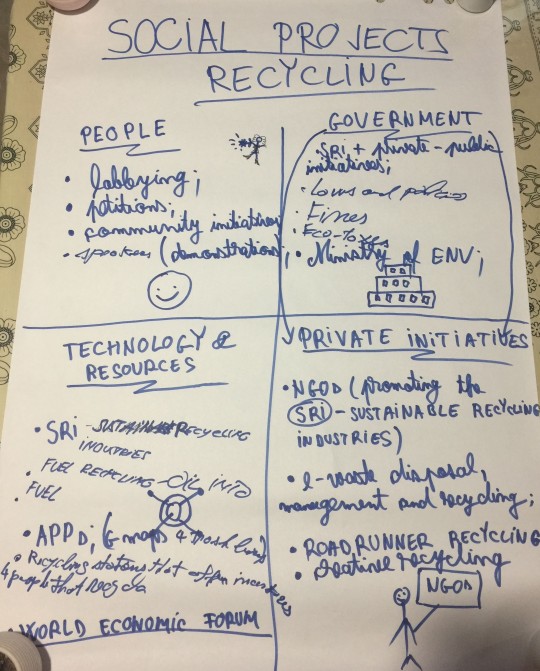 SOCIAL PROJECTS
RECYCLING
PEOPLE
• lobbying;
• petitions;
• community initiatives
• speakers (demonstrations);
GOVERNMENT
• SRi + private-public
initiatives;
• Laws and policies
• Fines
• Eco-taxes
• Ministry of ENV;
TECHNOLOGY &
RESOURCES
• SRi - RECYCLING
INDUSTRIES
• FUEL RECYCLING - OIL INTO
• FUEL
• APPs; (G maps 4
• Recycling stations that offer incentives
4 people that recycle
• WORLD ECONOMIC FORUM
PRIVATE INITIATIVES
• NGOs (promoting the
SRi - SUSTAINABLE RECYCLING
INDUSTRIES)
• e-waste disposal,
management and recycling;
• ROAD RUNNER RECYCLING
• creative recycling
NGOs